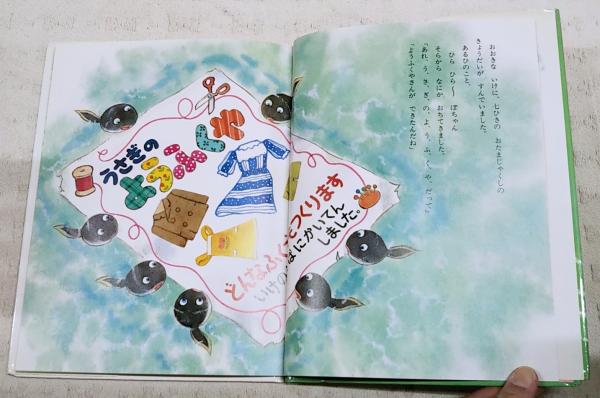 おおきな いけに、七ひきの おたまじゃくしの
きょうだいが すんでいました。
あるひのこと、
ひら ひら〜 ぽちゃん
そらから なにか おちてきました。
「あれ、う、さ、ぎ、の、よ、う、ふ、く、や、だって」
「ようふくやさんが できたんだね」
うさぎの
ようふくや
どんなふくもつくります
いけの ばにかいてん
しました。